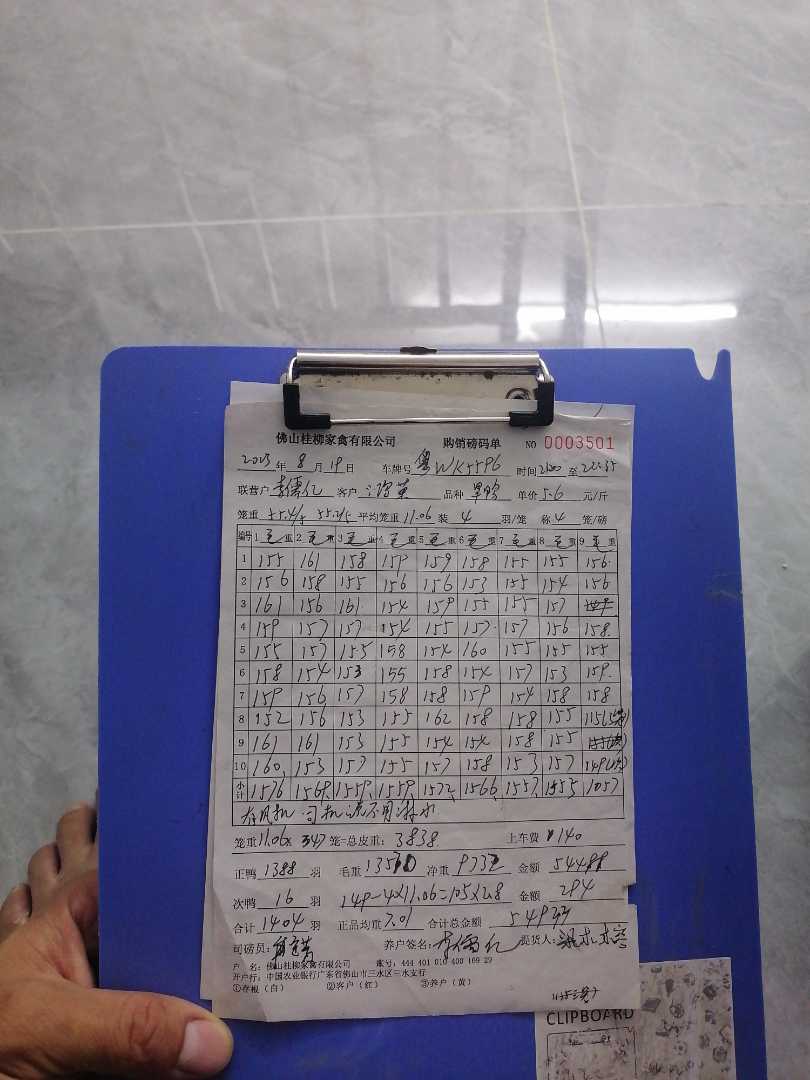 佛山桂柳家禽有限公司 购销磅码单 NO 0003501
2023 年 8 月 19 日 车牌号 粤WK5596 时间 至
联营户 李儒亿 客户 品种 单价 5.6 元/斤
笼重 平均笼重 11.06 装 4 羽/笼 称 4 笼/磅
编号 1 毛 重 2 毛 重 3 毛 重 4 毛 重 5 毛 重 6 毛 重 7 毛 重 8 毛 重 9 毛 重
1 155 161 158 159 159 158 155 155 156
2 156 158 155 156 156 153 155 154 156
3 161 156 161 154 159 155 155 157
4 159 157 157 154 155 157 157 156 158
5 155 157 155 158 154 160 155 155 155
6 158 154 153 155 158 154 157 153 159
7 159 156 157 158 158 159 154 158 158
8 152 156 153 155 162 158 158 155
9 161 161 153 155 154 154 158 155
10 160 153 157 155 157 158 153 157 149
小计 1576 1569 1559 1559 1572 1566 1557 1555 1057
有风机 司机说不用淋水
笼重 11.06 × 347 笼=总皮重: 3838 上车费 ¥140
正鸭 1388 羽 毛重 13570 净重 9732 金额 54488
次鸭 16 羽 149-4×11.06=105×2.8 金额 294
合计 1404 羽 正品均重 7.01 合计总金额
司磅员: 养户签名: 李儒亿 提货人:
户 名: 佛山桂柳家禽有限公司 账号: 444 401 010 400 169 29
开户行: 中国农业银行广东省佛山市三水区三水支行
①存根(白) ②客户(红) ③养户(黄)
CLIPBOARD